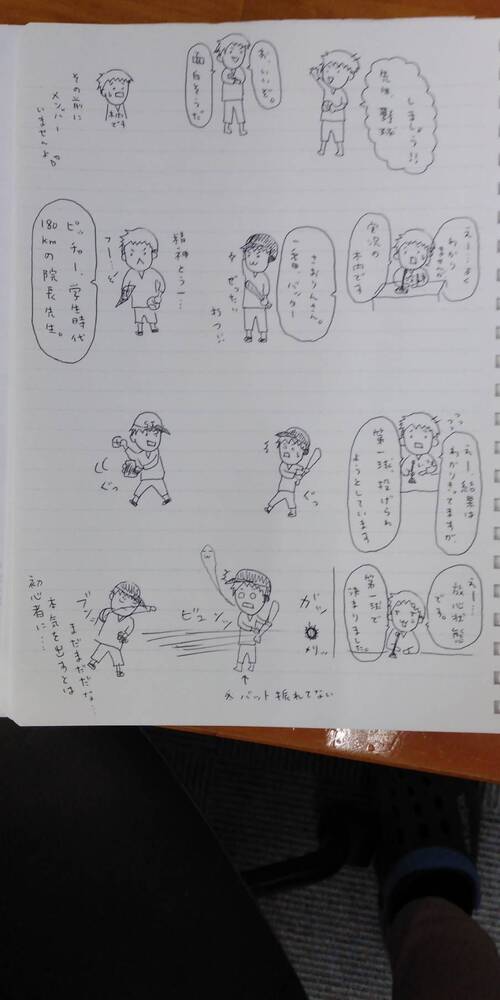 先生、野球
しましょう!!
お、いいぞ。
面白そうだ
その前に
メンバー
いませんよ。
えー…よく
わかりませんが
実況の
木内です
一番バッター
さおりんさん。
ぜったい
打つ!!
精神とう一…
フー…
ピッチャー、学生時代
180kmの院長先生。
えー、結果は
わかりきってますが、
第一球、投げられ
ようとしています
ぐっ
ぐっ
えー…
放心状態
です。
第一球で
決まりました。
ガッ
メリッ
ビュンッ
※バット振れてない
ブンッ
まだまだだな…
本気を出すとは
初心者に……